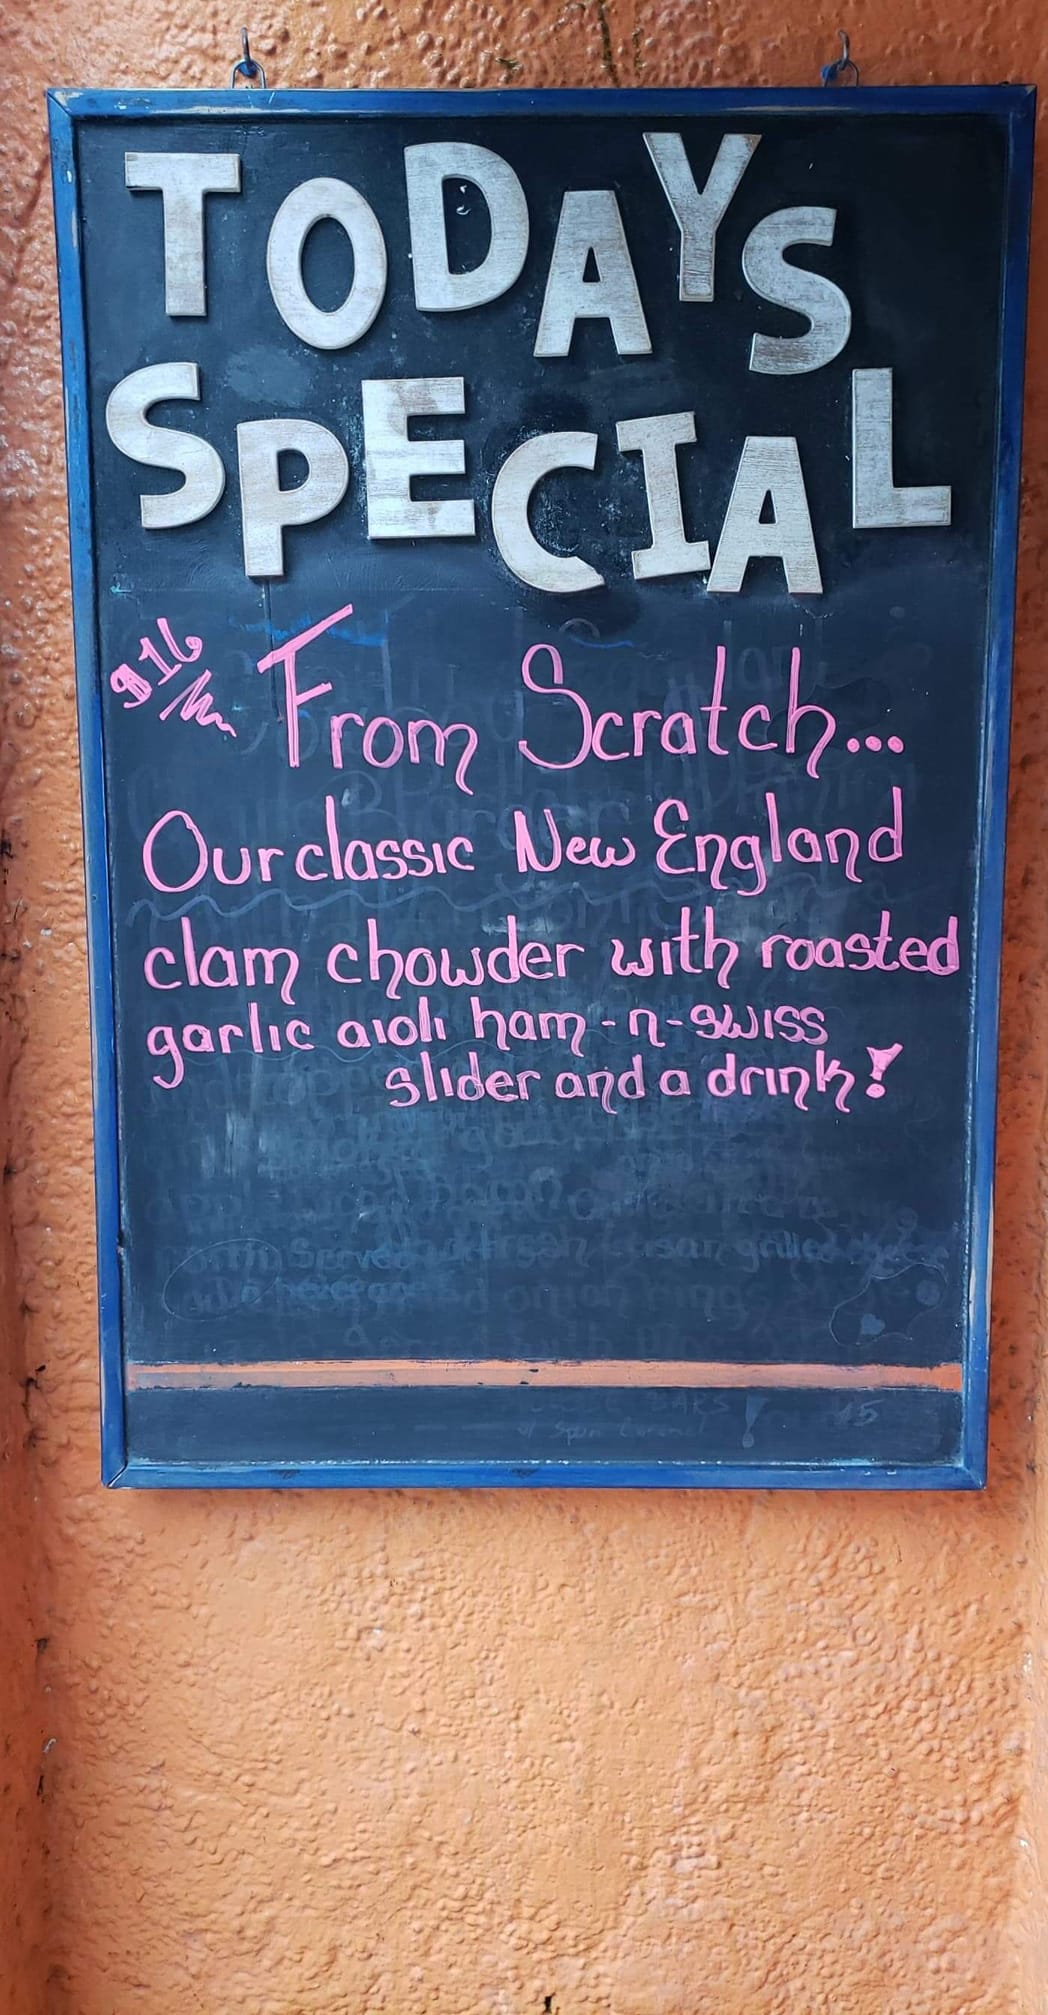 TODAYS
SPECIAL
$16
From Scratch...
Our classic New England
clam chowder with roasted
garlic aioli ham-n-swiss
slider and a drink!